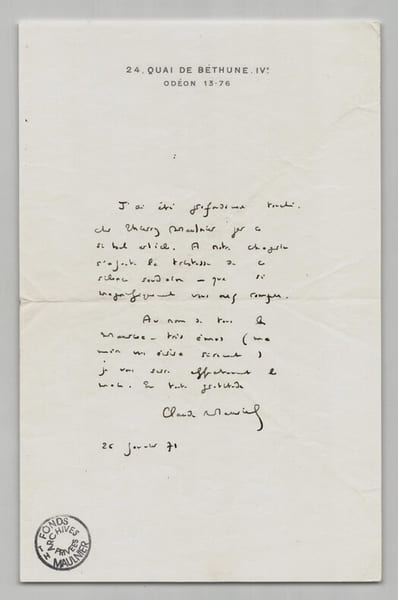 24, QUAI DE BÉTHUNE. IVᵉ
ODÉON 13-76
J'ai été profondément touché,
cher Thierry Maulnier par ce
si bel article. A notre chagrin
s'ajoute la tristesse de ce
silence soudain — que si
magnifiquement vous avez rompu.
Au nom de tous les
Mauriac — très émus (ma
vous écrira)
je vous serre affectueusement la
main. En toute gratitude
Claude Mauriac
26 janvier 71
FONDS
ARCHIVES
PRIVÉES
MAULNIER